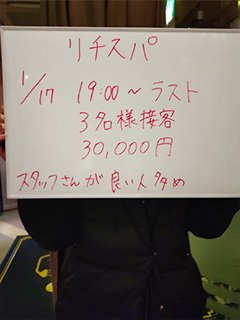 リチスパ
1/17 19:00〜ラスト
3名様接客
30,000円
スタッフさんが良い人多め